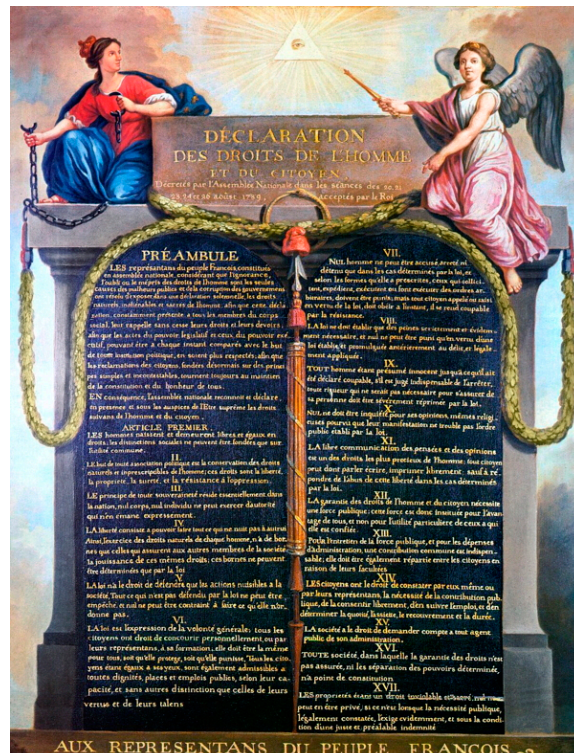 DÉCLARATION
DES DROITS DE L'HOMME
ET DU CITOYEN,
Décretés par l'Assemblée Nationale dans les séances des 20, 21
23, 24 et 26 août 1789, acceptés par le Roi
PRÉAMBULE
LES représentans du peuple François, constitués
en assemblée nationale, considérant que l'ignorance,
l'oubli ou le mépris des droits de l'homme sont les seules
causes des malheurs publics et de la corruption des gouvernemens
ont résolu d'exposer dans une déclaration solemnelle, les droits
naturels, inaliénables et sacrés de l'homme; afin que cette décla
ration, constamment présente à tous les membres du corps
social, leur rappelle sans cesse leurs droits et leurs devoirs;
afin que les actes du pouvoir législatif et ceux du pouvoir exé
cutif, pouvant être à chaque instant comparés avec le but
de toute institution politique, en soient plus respectés; afin que
les réclamations des citoyens, fondées désormais sur des princi
pes simples et incontestables, tournent toujours au maintien
de la constitution et du bonheur de tous.
EN conséquence, l'assemblée nationale reconnoît et déclare,
en présence et sous les auspices de l'Etre suprême les droits
suivans de l'homme et du citoyen.
ARTICLE PREMIER.
LES hommes naissent et demeurent libres et égaux en
droits, les distinctions sociales ne peuvent être fondées que sur
l'utilité commune.
II.
LE but de toute association politique est la conservation des droits
naturels et imprescriptibles de l'homme; ces droits sont la liberté,
la propriété, la sureté, et la résistance à l'oppression.
III.
LE principe de toute souveraineté réside essentiellement dans
la nation, nul corps, nul individu ne peut exercer d'autorité
qui n'en émane expressement.
IV.
LA liberté consiste à pouvoir faire tout ce qui ne nuit pas à autrui
Ainsi, l'exercice des droits naturels de chaque homme, n'a de bor
nes que celles qui assurent aux autres membres de la société
la jouissance de ces mêmes droits; ces bornes ne peuvent
être déterminées que par la loi
V.
LA loi n'a le droit de défendre que les actions nuisibles à la
société. Tout ce qui n'est pas défendu par la loi ne peut être
empêché, et nul ne peut être contraint à faire ce qu'elle n'or
donne pas.
VI.
LA loi est l'expression de la volonté générale; tous les
citoyens ont droit de concourir personnellement, ou par
leurs représentans, à sa formation; elle doit être la même
pour tous, soit qu'elle protege, soit qu'elle punisse. Tous les cito
yens étant égaux à ses yeux, sont également admissibles à
toutes dignités, places et emplois publics, selon leur ca
pacité, et sans autres distinction que celles de leurs
vertus et de leurs talens
VII.
NUL homme ne peut être accusé, arreté ni
détenu que dans les cas déterminés par la loi, et
selon les formes qu'elle a prescrites, ceux qui sollici
tent, expédient, exécutent ou font exécuter des ordres ar
bitraires, doivent être punis; mais tout citoyen appelé ou saisi
en vertu de la loi, doit obéir à l'instant, il se rend coupable
par la résistance.
VIII.
LA loi ne doit établir que des peines strictement et évidem
ment nécessaire, et nul ne peut être puni qu'en vertu d'une
loi établie et promulguée antérierement au délit, et légale
ment appliquée.
IX.
TOUT homme étant présumé innocent jusqu'à ce qu'il ait
été déclaré coupable, s'il est jugé indispensable de l'arrêter,
toute rigueur qui ne serait pas nécessaire pour s'assurer de
sa personne doit être sévèrement réprimée par la loi.
X.
NUL ne doit être inquiété pour ses opinions, mêmes religi
euses pourvu que leur manifestation ne trouble pas l'ordre
public établi par la loi.
XI.
LA libre communication des pensées et des opinions
est un des droits les plus precieux de l'homme; tout citoyen
peut donc parler écrire, imprimer librement: sauf à ré
pondre de l'abus de cette liberté dans les cas déterminés
par la loi.
XII.
LA garantie des droits de l'homme et du citoyen nécessite
une force publique; cette force est donc instituée pour l'avan
tage de tous, et non pour l'utilité particuliere de ceux a qui
elle est confiée.
XIII.
POUR l'entretien de la force publique, et pour les dépenses
d'administration, une contribution commune est indispen
sable; elle doit être également répartie entre les citoyens en
raison de leurs facultées
XIV.
LES citoyens ont le droit de constater par eux même ou
par leurs représentans, la nécessité de la contribution pub
lique, de la consentir librement, d'en suivre l'emploi, et d'en
déterminer la quotité, l'assiette, le recouvrement et la durée.
XV.
LA société a le droit de demander compte a tout agent
public de son administration.
XVI.
TOUTE société, dans laquelle la garantie des droits n'est
pas assurée, ni la séparation des pouvoirs déterminée,
n'a point de constitution.
XVII.
LES propriétés étant un droit inviolable et sacré, nul ne
peut en être privé, si ce n'est lorsque la nécessité publique,
légalement constatée, l'exige evidemment, et sous la condi
tion d'une juste et préalable indemnité
AUX REPRESENTANS DU PEUPLE FRANCOIS